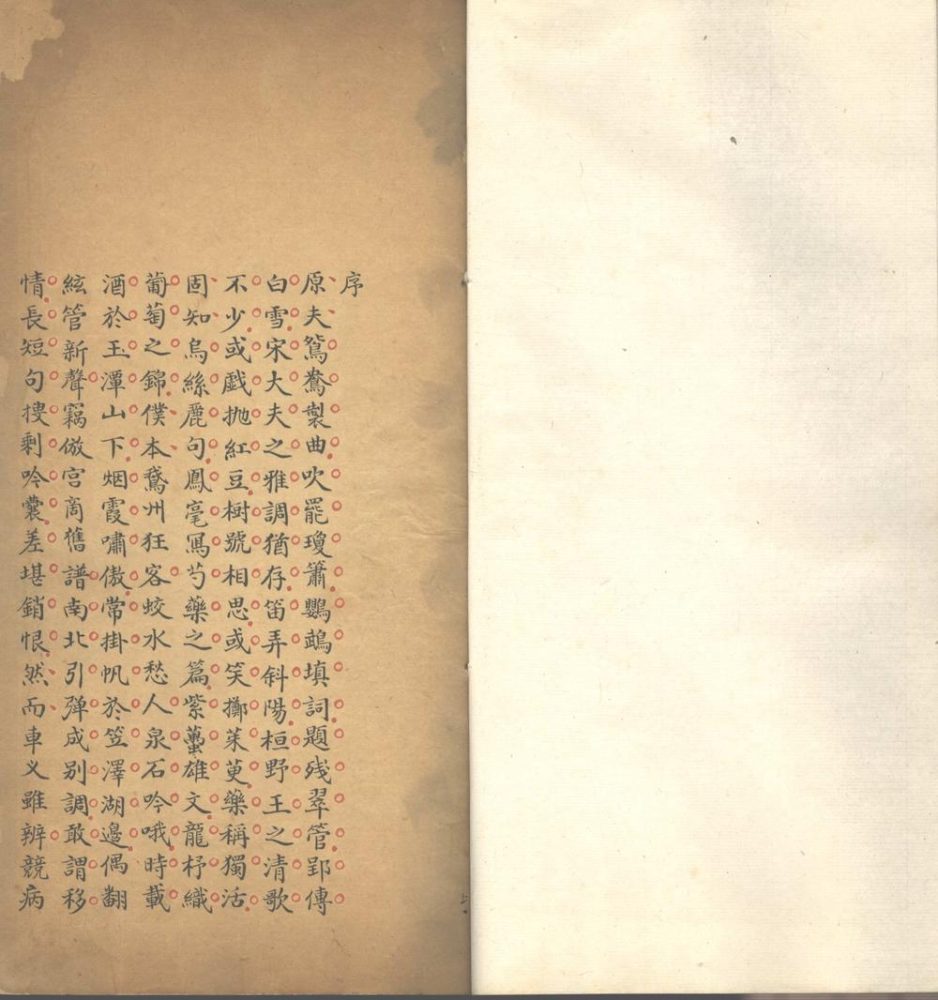 序
原夫鴛鴦製曲吹罷瓊簫鸚鵡填詞題残翠管郢傳
白雪宋大夫之雅調猶存笛弄斜陽桓野王之清歌
不少或戲抛紅豆樹號相思或笑擲茱萸藥稱獨活
固知烏絲麗句鳳毫寫芍藥之篇紫蠆雄文龍杼織
葡萄之錦僕本鵞州狂客蛟水愁人泉石吟哦時載
酒於玉潭山下烟霞嘯傲常掛帆於笠澤湖邊偶翻
絃管新聲竊倣宮商舊譜南北引弹成别調敢謂移
情長短句摟剩吟囊差堪銷恨然而車义雖辨競病